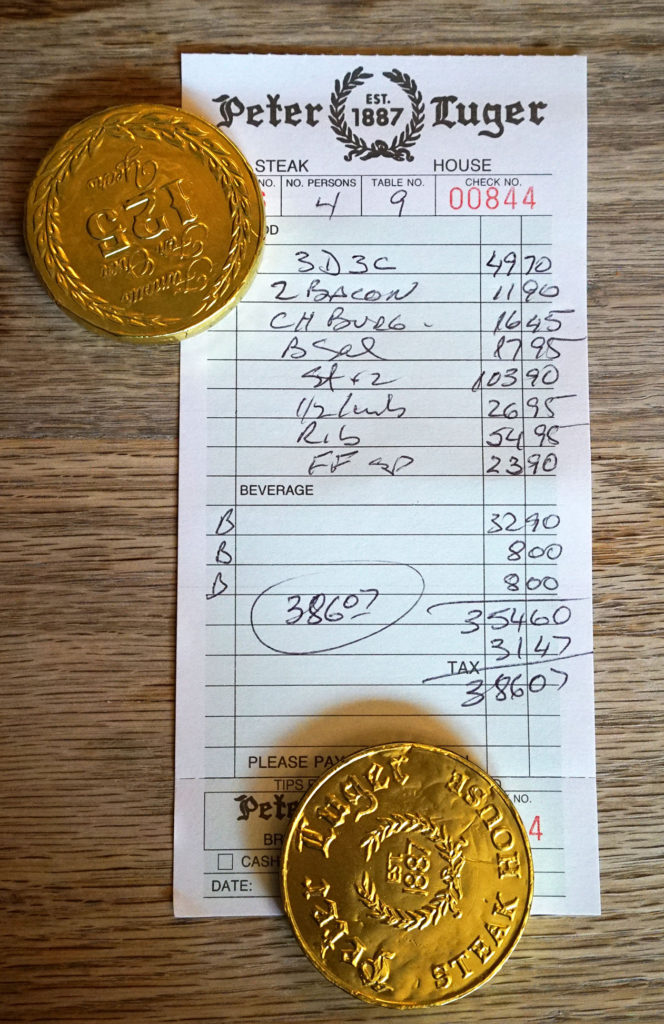 Peter EST. 1887 Luger
STEAK HOUSE
NO. NO. PERSONS TABLE NO. CHECK NO.
4 9 00844
3D3C 4970
2 BACON 1190
CH BURG. 1645
B Sal 1795
St + 2 10390
1/2 lamb 2695
Rib 5495
FF sp 2390
BEVERAGE
B 3290
B 800
B 800
38607 35460
3147
TAX
38607
PLEASE PAY
TIPS
Peter NO.
4
CASH
DATE:
Famous
For Over
125
Years
Peter Luger
EST.
1887
STEAK House